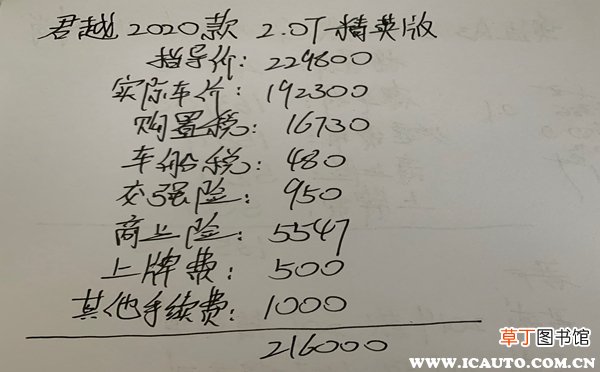 君越 2020款 2.0T 精英版
指导价: 229800
实际车价: 192300
购置税: 16730
车船税: 480
交强险: 950
商业险: 5547
上牌费: 500
其他手续费: 1000
216000
草丁图书馆
WWW.ICAUTO.COM.CN